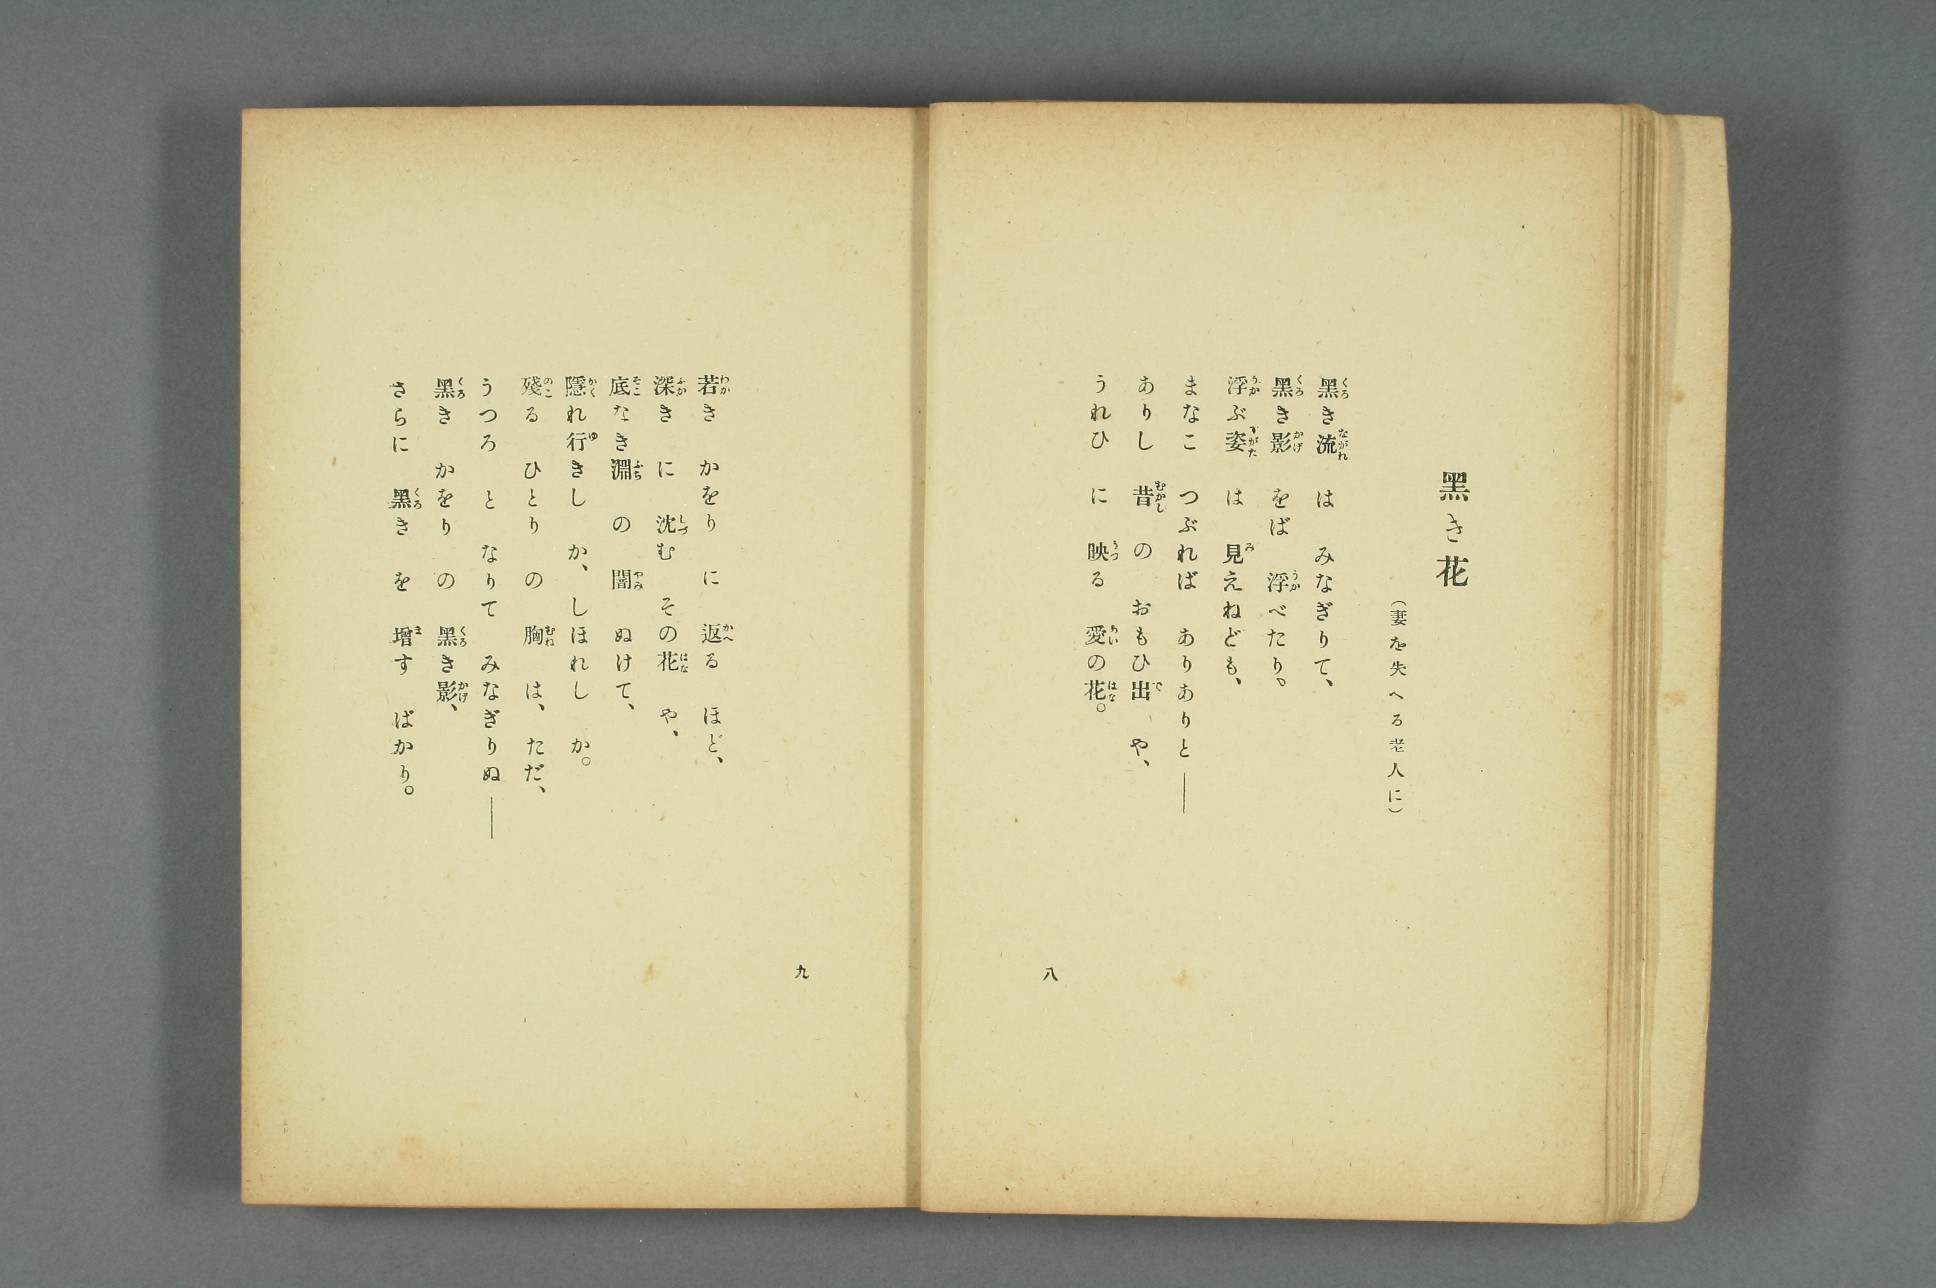 黑き花
（妻を失へる老人に）
黑き流 は みなぎりて、
黑き影 をば 浮べたり。
浮ぶ姿 は 見えねども、
まなこ つぶれば ありありと――
ありし 昔 の おもひ出 や、
うれひ に 映る 愛の花。
八
若き かをり に 返る ほど、
深き に 沈む その花 や、
底なき淵 の 闇 ぬけて、
隱れ行きし か、しほれし か。
殘る ひとり の 胸 は、ただ、
うつろ と なりて みなぎりぬ――
黑き かをり の 黑き影、
さらに 黑き を 增す ばかり。
九